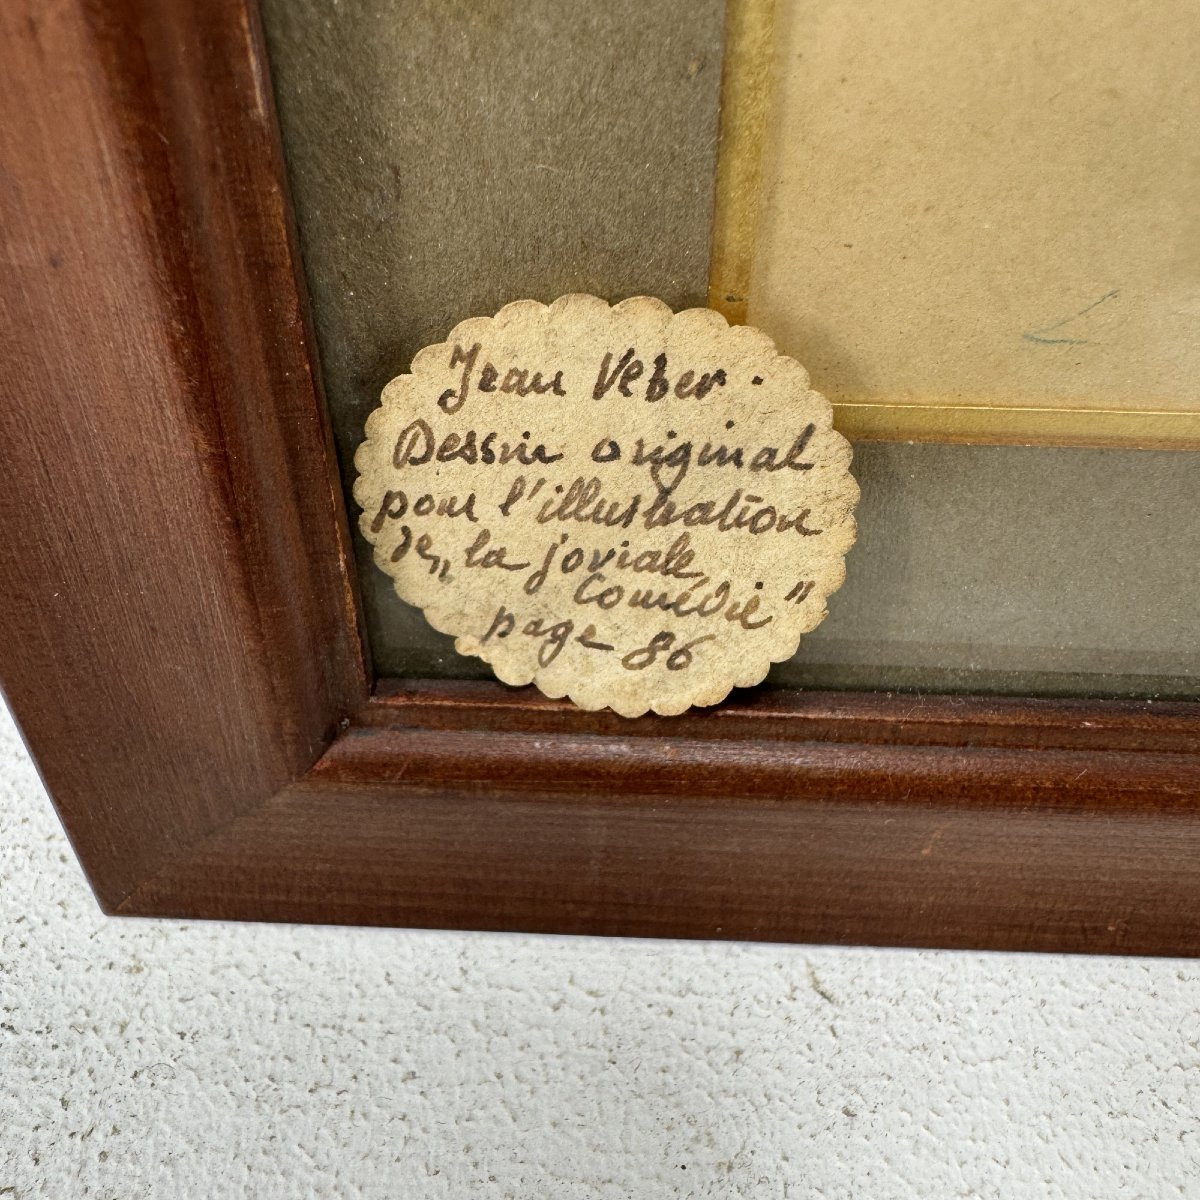 Jean Veber.
Dessin original
pour l'illustration
de „la joviale
Comédie"
page 86